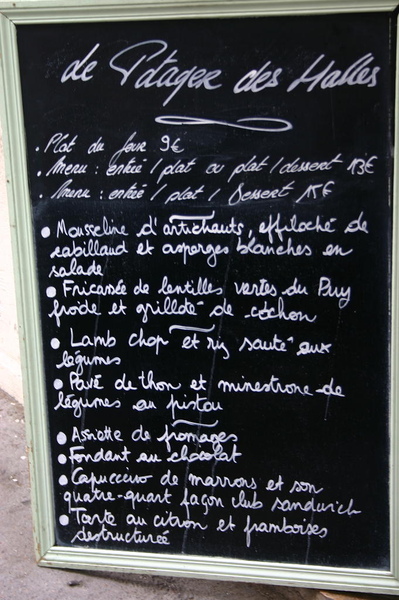 Le Potager des Halles
. Plat du jour 9€
. Menu : entrée / plat ou plat / dessert 13€
. Menu : entrée / plat / Dessert 15€
• Mousseline d'artichauts, effiloché de
cabillaud et asperges blanches en
salade
• Fricassée de lentilles vertes du Puy
froide et grilloté de cochon
• Lamb chop et riz sauté aux
légumes
• Pavé de thon et minestrone de
légumes au pistou
• Assiette de fromages
• Fondant au chocolat
• Capuccino de marrons et son
quatre-quart façon club sandwich
• Tarte au citron et framboises
destructurée